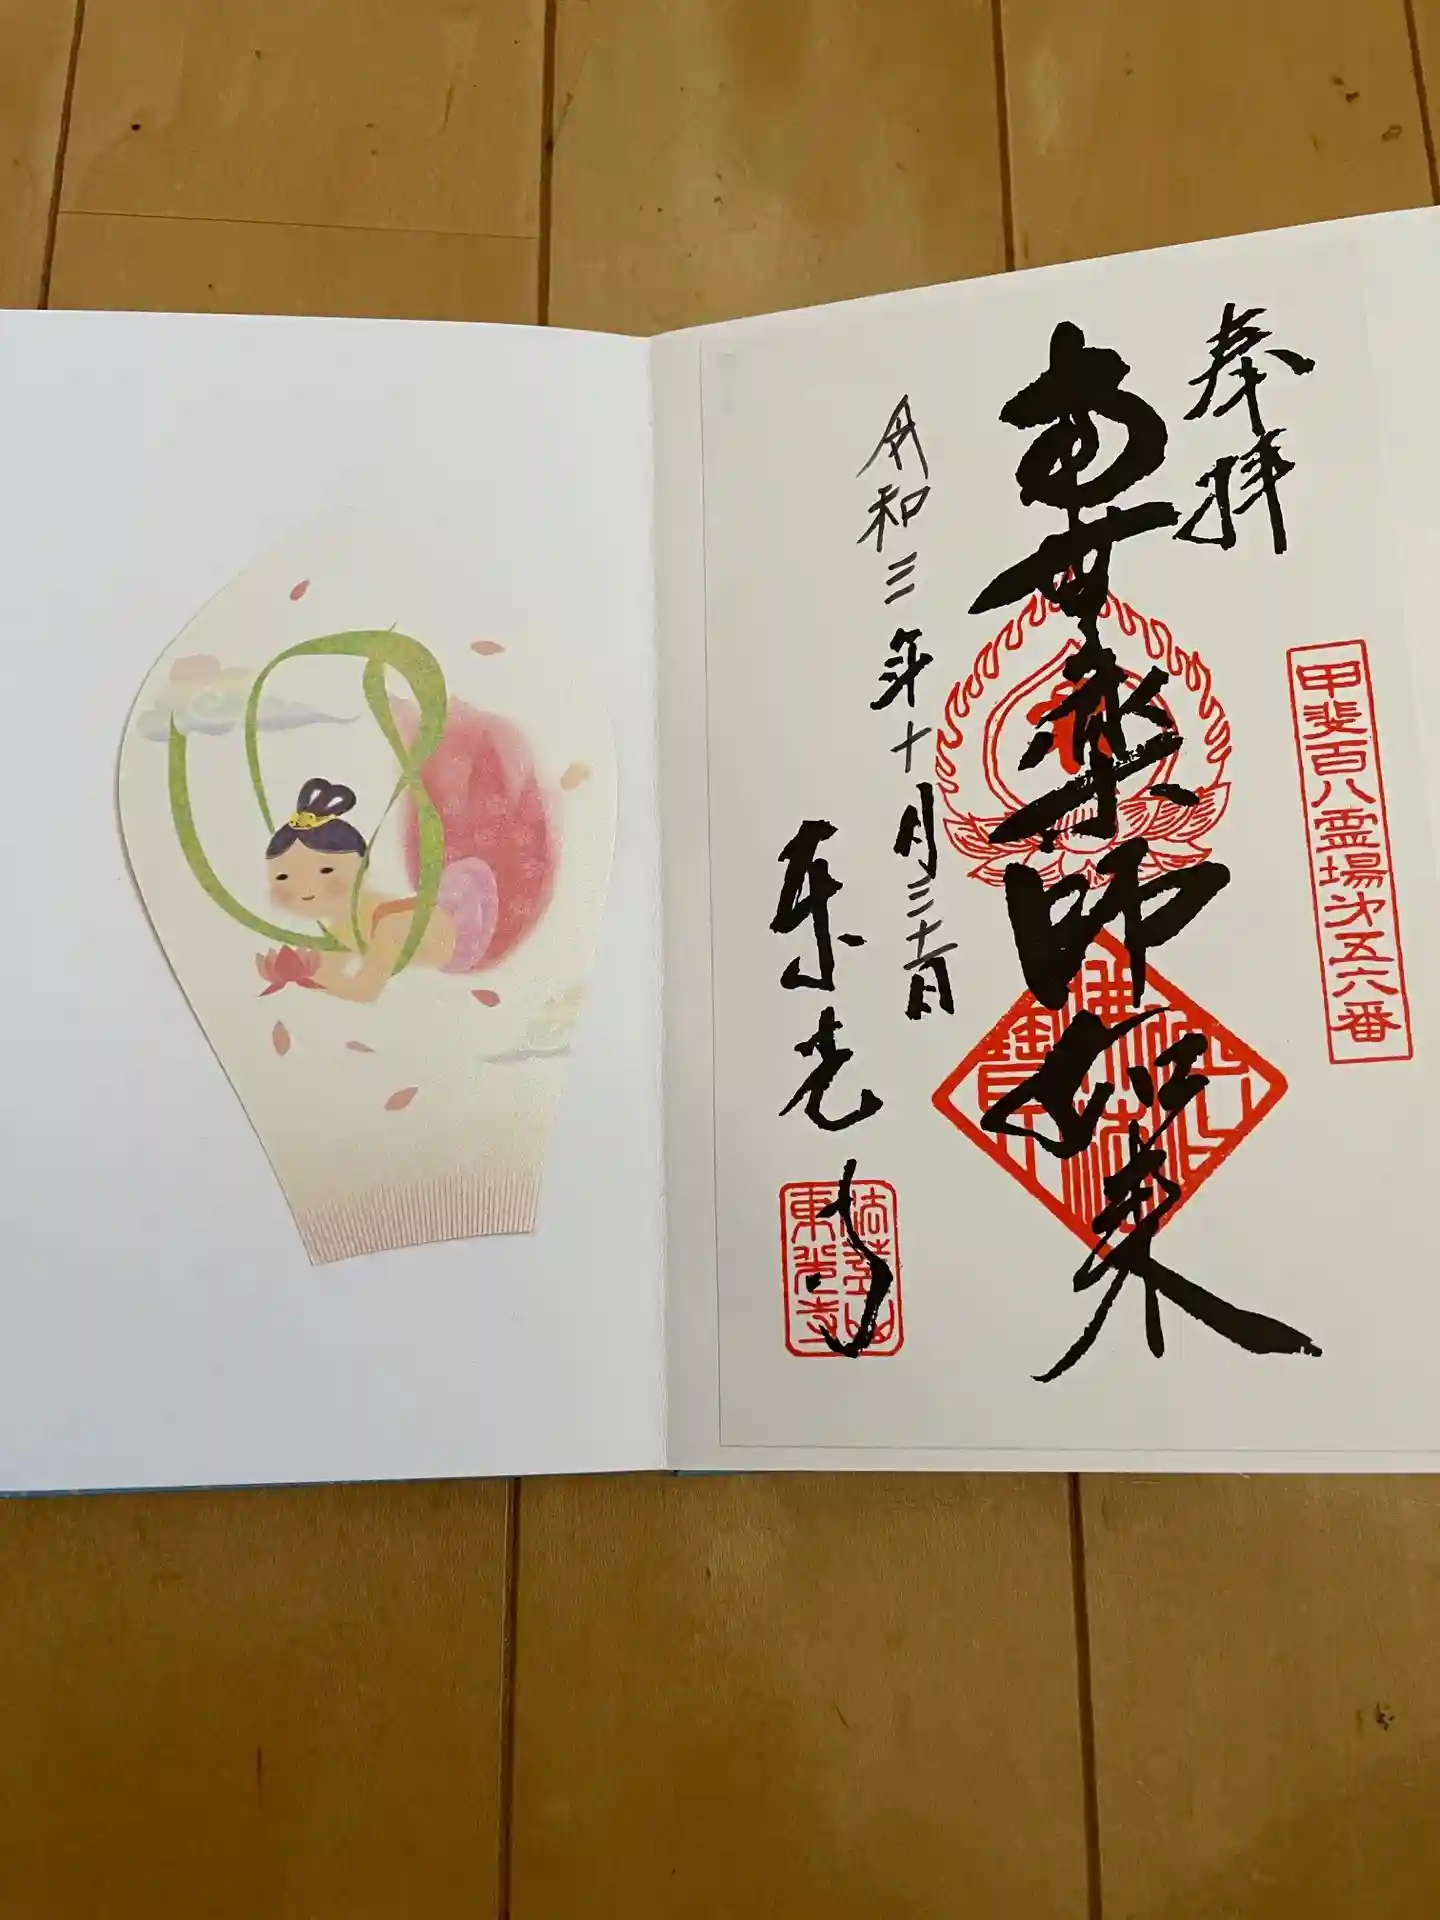 奉拝
甲斐百八霊場第五六番
南無薬師如来
佛法僧寶
令和三年十月三十一日
東光寺
法蓋山
東光寺